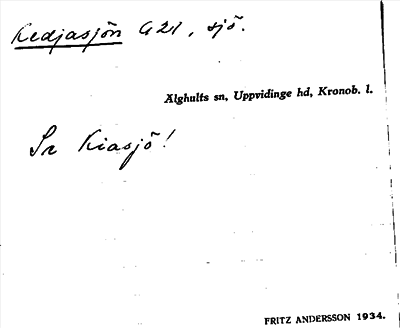 Kedjasjön G21, sjö.
Älghults sn, Uppvidinge hd, Kronob. l.
Se Kiasjö!
FRITZ ANDERSSON 1934.